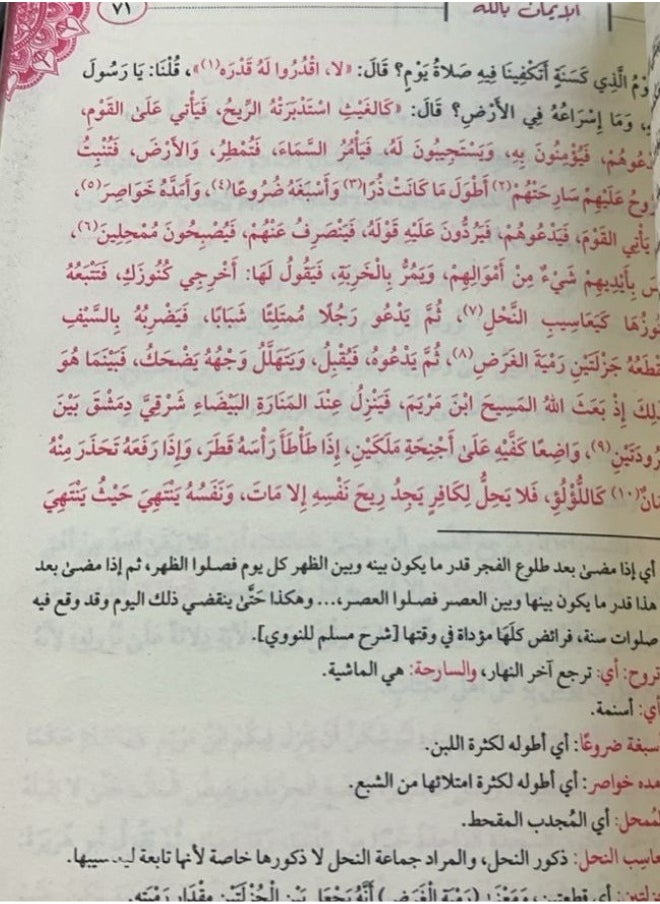 الإيمان بالله
٧١
الَّذِي كَسَنَةٍ أَتَكْفِينَا فِيهِ صَلَاةُ يَوْمٍ؟ قَالَ: «لا، اقْدُرُوا لَهُ قَدْرَه (١)»، قُلْنَا: يَا رَسُولَ
وَمَا إِسْرَاعُهُ فِي الأَرْضِ؟ قَالَ: «كَالغَيْثِ اسْتَدْبَرَتْهُ الرِّيحُ، فَيَأْتِي عَلَى القَوْمِ،
فَيُؤْمِنُونَ بِهِ، وَيَسْتَجِيبُونَ لَهُ، فَيَأْمُرُ السَّمَاءَ، فَتُمْطِرُ، وَالأَرْضَ، فَتُنْبِتُ
عَلَيْهِمْ سَارِحَتُهُمْ (٢) أَطْوَلَ مَا كَانَتْ ذُرًا (٣) وَأَسْبَغَهُ ضُرُوعًا (٤)، وَأَمَدَّهُ خَوَاصِرَ (٥)،
يَأْتِي القَوْمَ، فَيَدْعُوهُمْ، فَيَرُدُّونَ عَلَيْهِ قَوْلَهُ، فَيَنْصَرِفُ عَنْهُمْ، فَيُصْبِحُونَ مُمْحِلِينَ (٦)،
بِأَيْدِيهِمْ شَيْءٌ مِنْ أَمْوَالِهِمْ، وَيَمُرُّ بِالْخَرِبَةِ، فَيَقُولُ لَهَا: أَخْرِجِي كُنُوزَكِ، فَتَتْبَعُهُ
كَيَعَاسِيبِ النَّحْلِ (٧)، ثُمَّ يَدْعُو رَجُلًا مُمتَلِئًا شَبَابًا، فَيَضْرِبُهُ بِالسَّيْفِ
جَزْلَتَيْنِ رَمْيَةَ الغَرَضِ (٨)، ثُمَّ يَدْعُوهُ، فَيُقْبِلُ، وَيَتَهَلَّلُ وَجْهُهُ يَضْحَكُ، فَبَيْنَمَا هُوَ
إِذْ بَعَثَ اللهُ المَسِيحَ ابْنَ مَرْيَمَ، فَيَنْزِلُ عِنْدَ المَنَارَةِ البَيْضَاءِ شَرْقِيَّ دِمَشْقَ بَيْنَ
(٩)، وَاضِعًا كَفَّيْهِ عَلَى أَجْنِحَةِ مَلَكَيْنِ، إِذَا طَأْطَأَ رَأْسَهُ قَطَرَ، وَإِذَا رَفَعَهُ تَحَدَّرَ مِنْهُ
(١٠) كَاللُّؤْلُؤِ، فَلا يَحِلُّ لِكَافِرٍ يَجِدُ رِيحَ نَفْسِهِ إِلا مَاتَ، وَنَفَسُهُ يَنْتَهِيَ حَيْثُ يَنْتَهِيَ
أي إذا مضىٰ بعد طلوع الفجر قدر ما يكون بينه وبين الظهر كل يوم فصلوا الظهر، ثم إذا مضىٰ بعد
هذا قدر ما يكون بينها وبين العصر فصلوا العصر،... وهكذا حَتَّىٰ ينقضي ذلك اليوم وقد وقع فيه
صلوات سنة، فرائض كلَهَا مؤداة في وقتها [شرح مسلم للنووي].
تروح: أي: ترجع آخر النهار، والسارحة: هي الماشية.
أي: أسنمة.
ضروعًا: أي أطوله لكثرة اللبن.
خواصر: أي أطوله لكثرة امتلائها من الشبع.
أي المُجدب المقحط.
النحل: ذكور النحل، والمراد جماعة النحل لا ذكورها خاصة لأنها تابعة
أي قطعتين، وَمَعْنَىٰ (رَمْيَةَ الْغَرَضِ) أَنَّهُ يَجْعَلُ بَيْنَ الْجُزْلَتَيْنِ مِقْدَارَ رَمْيَتِهِ.